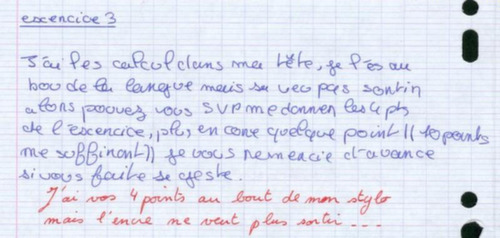 exencice 3
J'ai les calcul dans ma tête, je l'es au
bou de la langue mais sa veu pas sontin
alons pouvez vous SVP me donnen les 4 pts
de l'exencice, plus en cone quelque point (( 10 points
me suffinont )) je vous nemencie d'avance
si vous faite se geste.
J'ai vos 4 points au bout de mon stylo
mais l'encre ne veut plus sortir ...